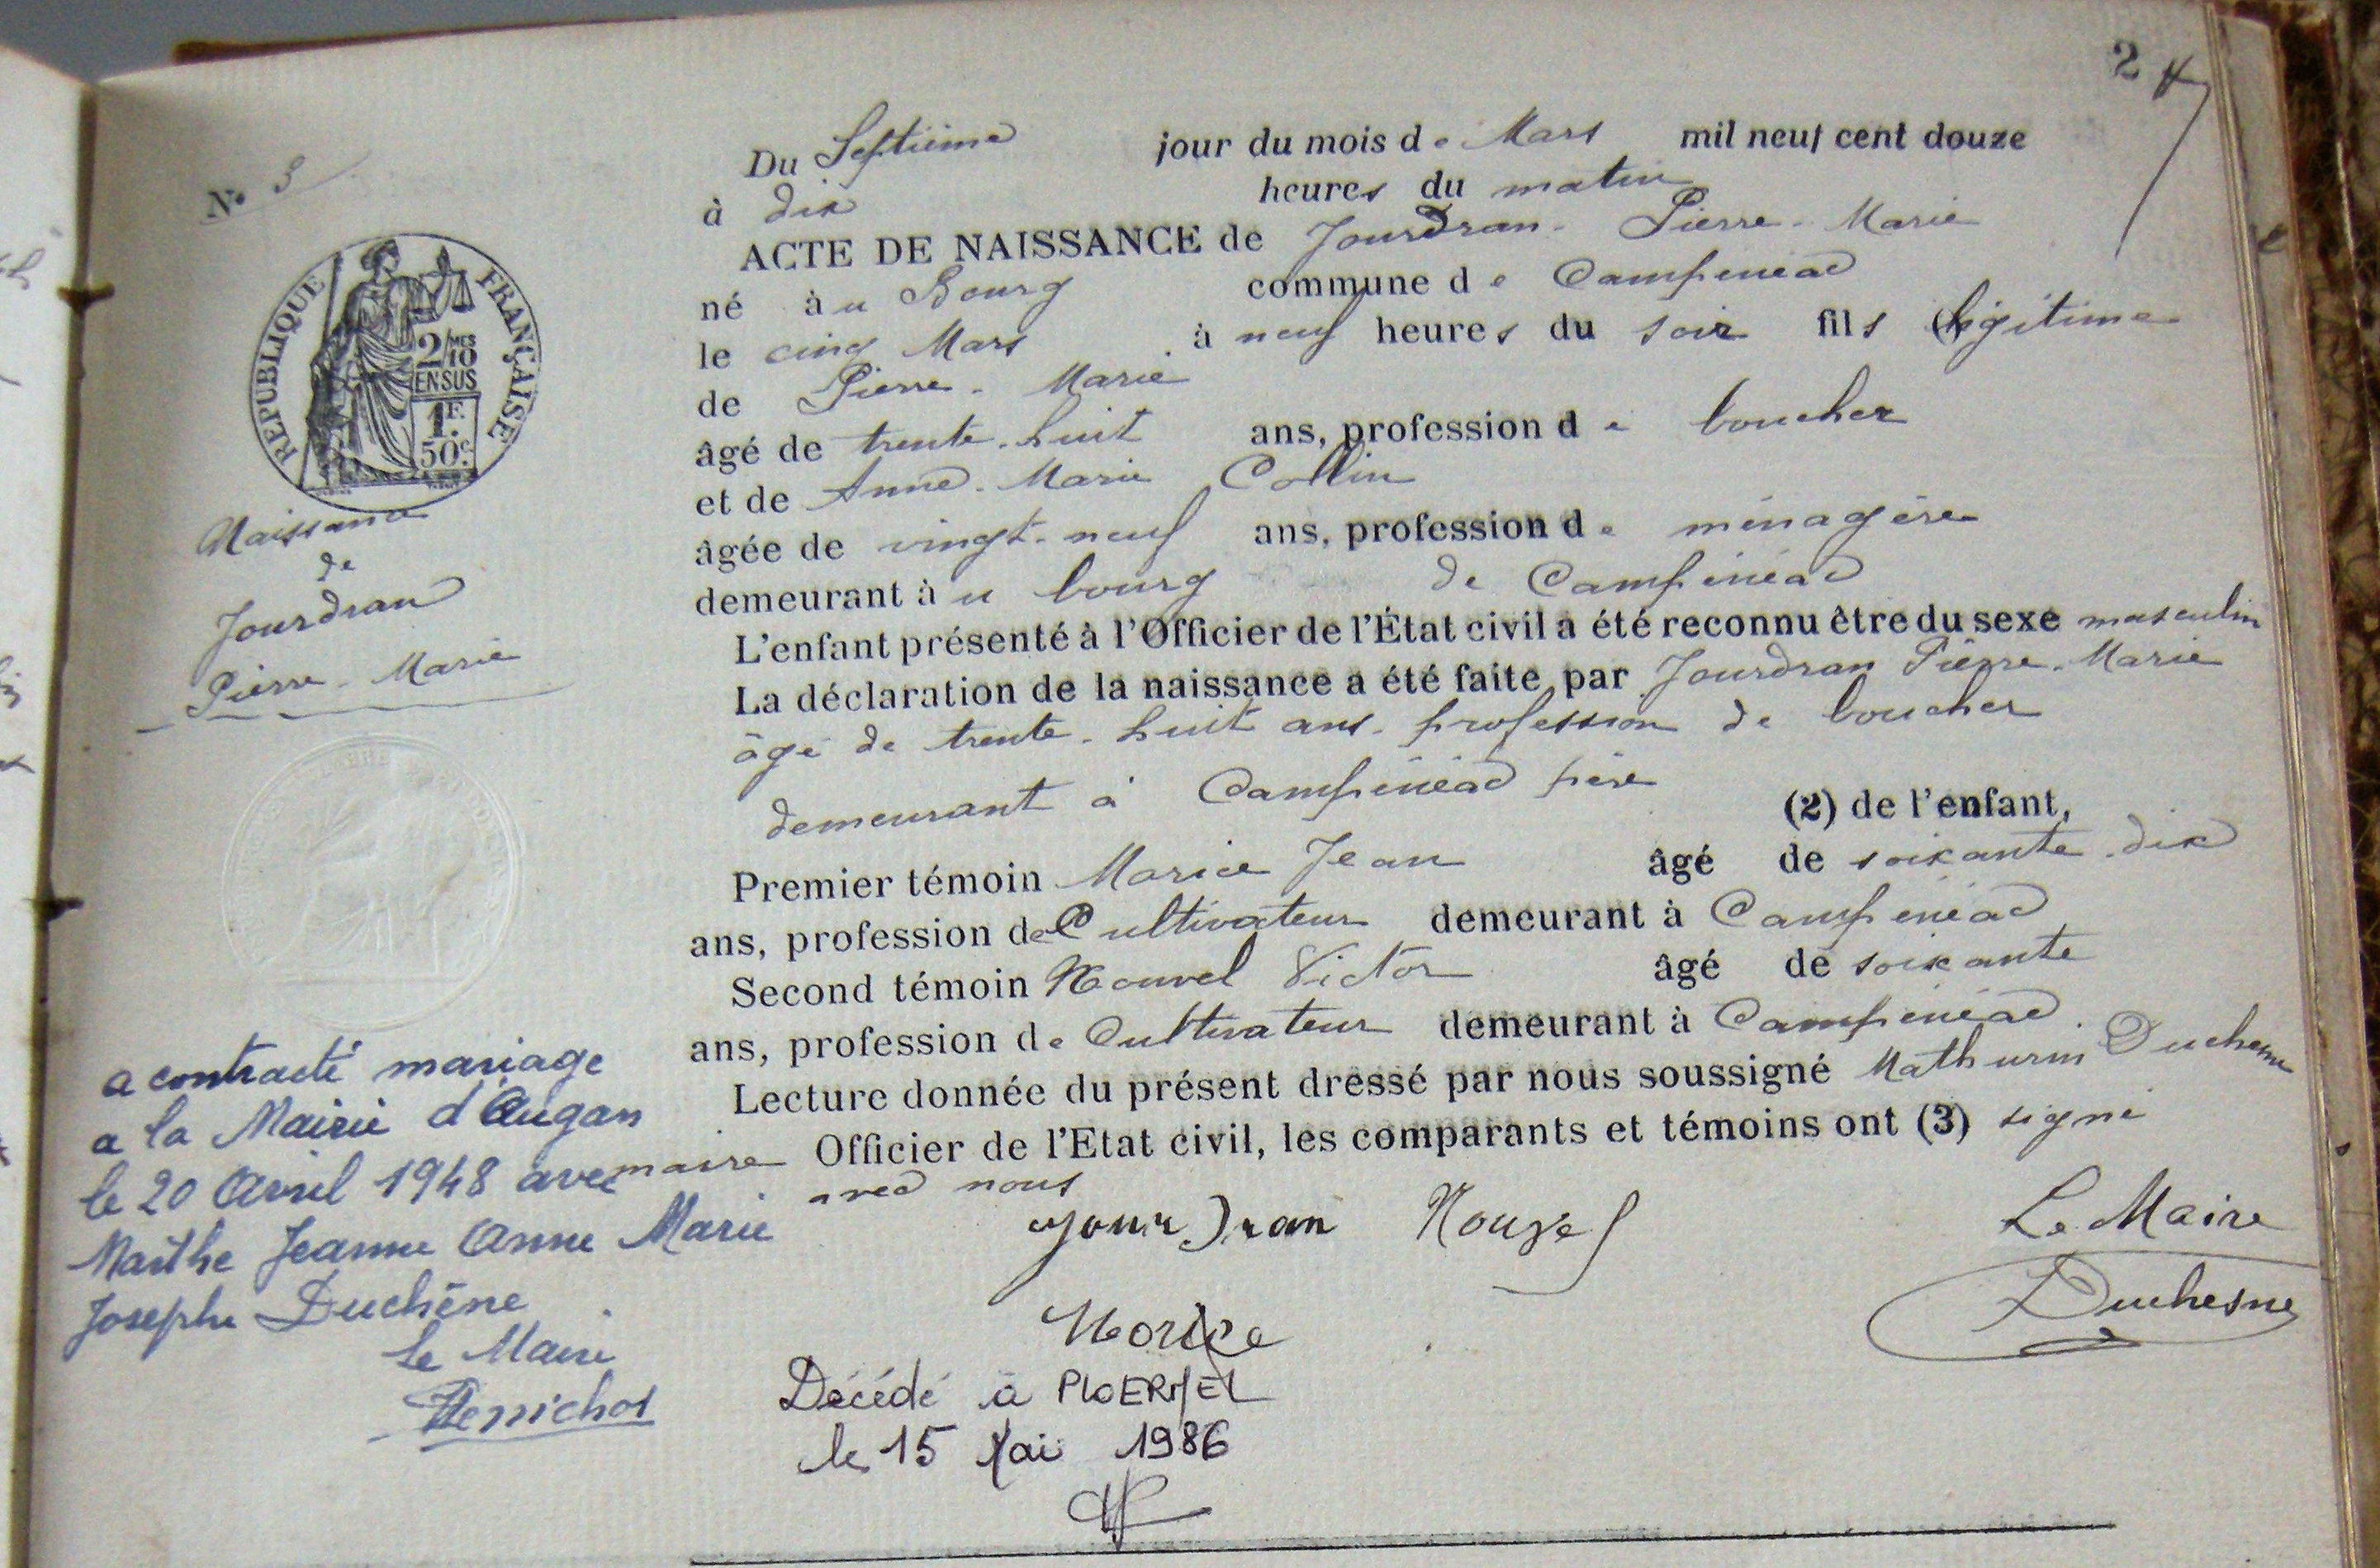 2
N° 8
RÉPUBLIQUE FRANÇAISE
2/MES 10
EN SUS
1F.
50c.
Naissance
de
Jourdran
Pierre-Marie
a contracté mariage
a la Mairie d'Augan
le 20 Avril 1948 avec
Marthe Jeanne Anne Marie
Josephe Duchêne
le Maire
Du Septième jour du mois de Mars mil neuf cent douze
à dix heures du matin
ACTE DE NAISSANCE de Jourdran - Pierre - Marie
né au Bourg commune de Campénéac
le cinq Mars à neuf heures du soir fils légitime
de Pierre - Marie
âgé de trente-huit ans, profession de boucher
et de Anne-Marie Collin
âgée de vingt-neuf ans, profession de ménagère
demeurant au bourg de Campénéac
L'enfant présenté à l'Officier de l'État civil a été reconnu être du sexe masculin
La déclaration de la naissance a été faite par Jourdran Pierre-Marie
âgé de trente-huit ans - profession de boucher
demeurant à Campénéac père (2) de l'enfant,
Premier témoin Morice Jean âgé de soixante-dix
ans, profession de Cultivateur demeurant à Campénéac
Second témoin Nouvel Victor âgé de soixante
ans, profession de Cultivateur demeurant à Campénéac.
Lecture donnée du présent dressé par nous soussigné Mathurin Duchesne
maire Officier de l'Etat civil, les comparants et témoins ont (3) signé
avec nous
Jourdran Nouvel
Le Maire
Duchesne
Morice
Décédé à PLOERMEL
le 15 Mai 1986